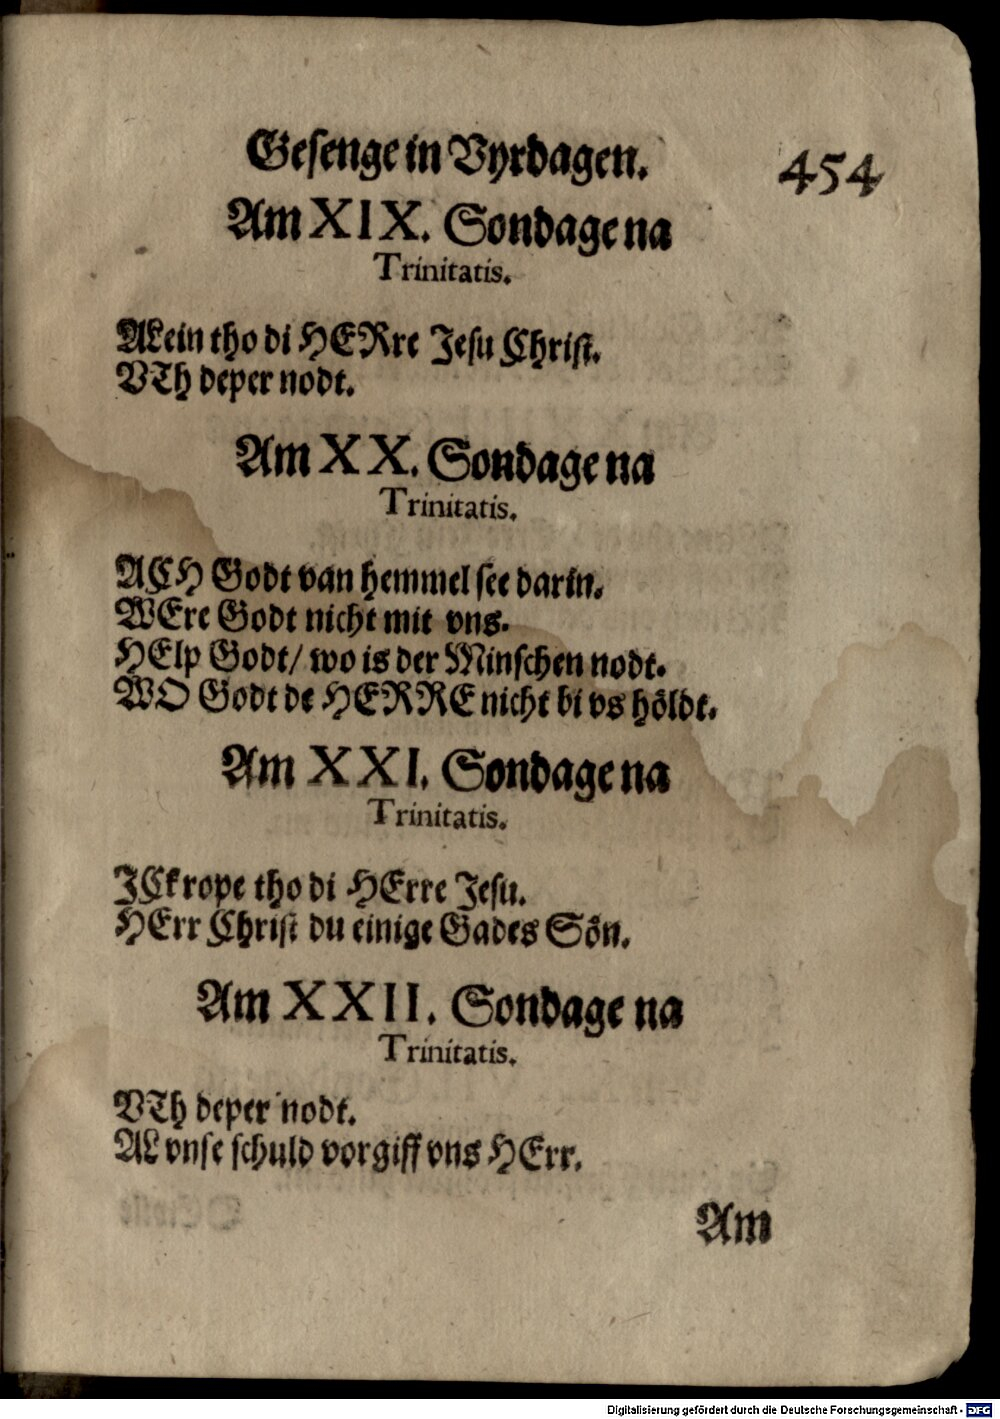 Gesenge in Vyrdagen.
454
Am XIX. Sondage na
Trinitatis.
ALein tho di HERre Jesu Christ.
VTh deper nodt.
Am XX. Sondage na
Trinitatis.
ACH Godt van hemmel see darin.
WEre Godt nicht mit vns.
HElp Godt/ wo is der Minschen nodt.
WO Godt de HERRE nicht bi vs höldt.
Am XXI. Sondage na
Trinitatis.
JCk rope tho di HErre Jesu.
HErr Christ du einige Gades Sön.
Am XXII. Sondage na
Trinitatis.
VTh deper nodt.
AL vnse schuld vorgiff vns HErr.
Am
Digitalisierung gefördert durch die Deutsche Forschungsgemeinschaft - DFG